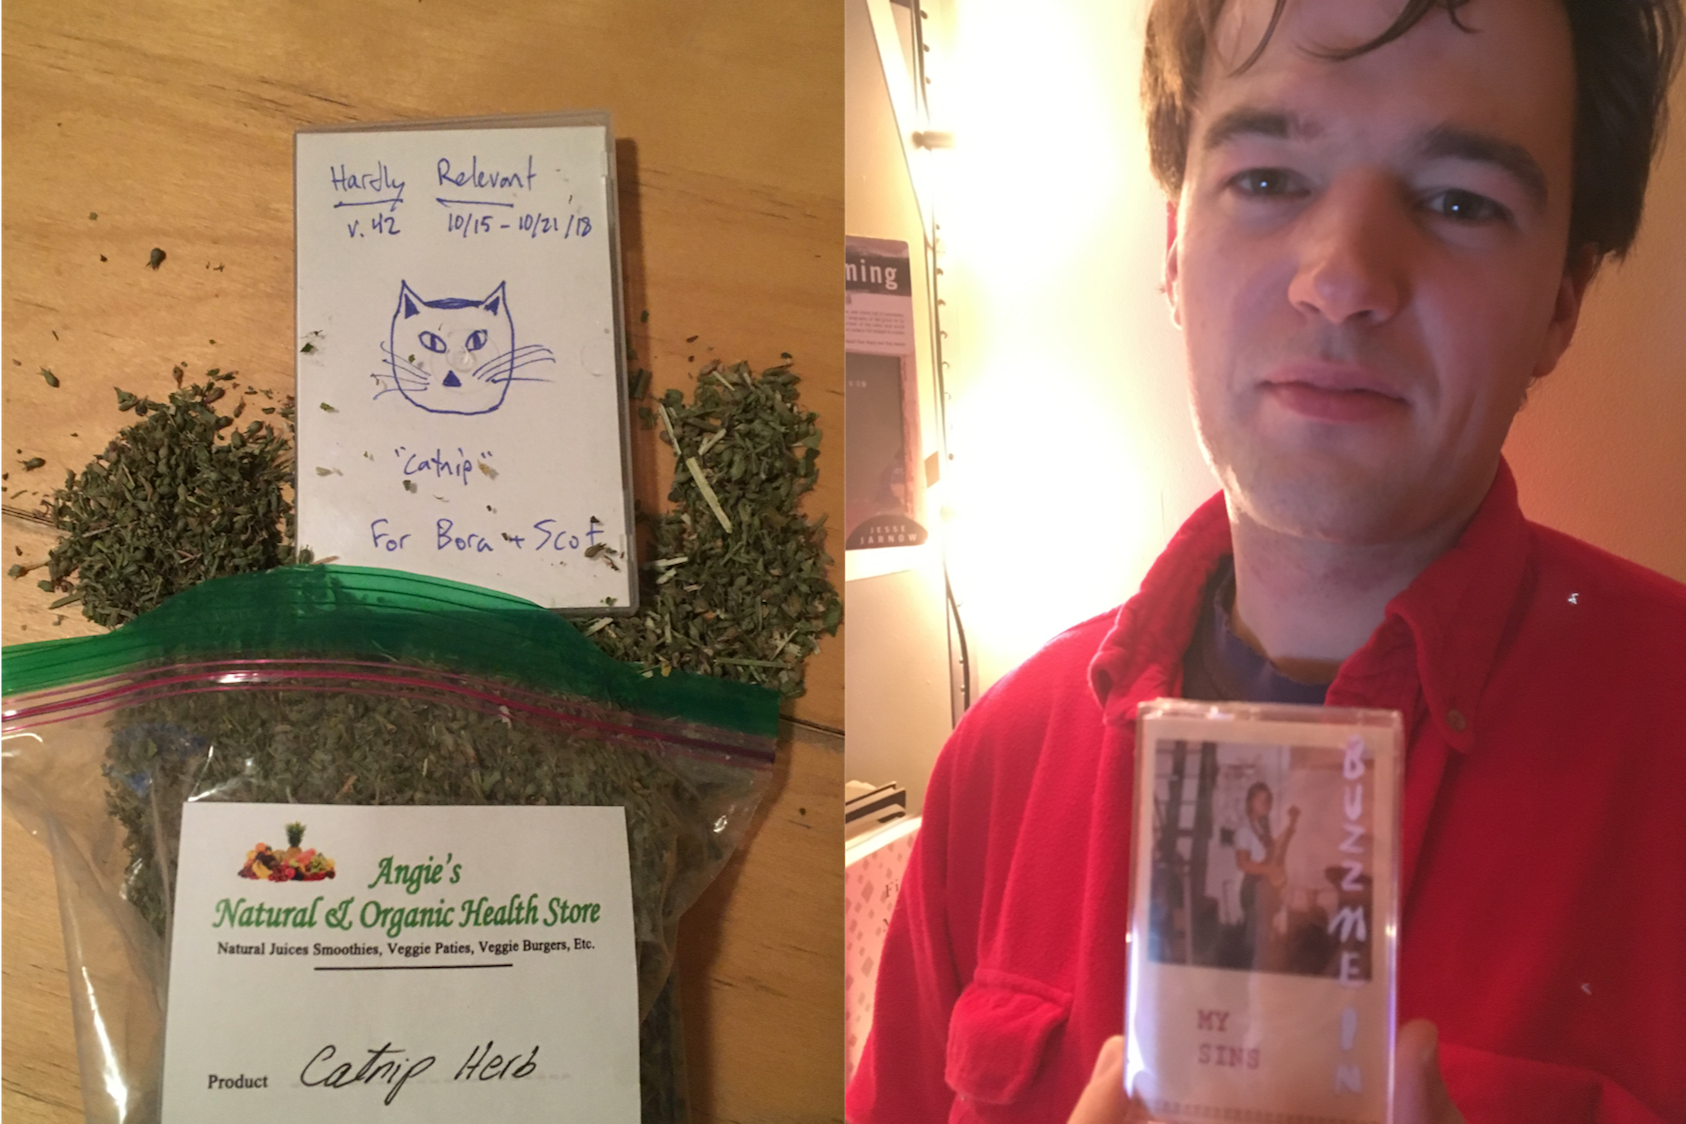 Hardly Relevant
v.42 10/15 - 10/21/18
"Catnip"
For Bora + Scot
Angie's
Natural & Organic Health Store
Natural Juices Smoothies, Veggie Paties, Veggie Burgers, Etc.
Product Catnip Herb
ming
JESSE
JARNOW
BUZZ ME IN
MY
SINS